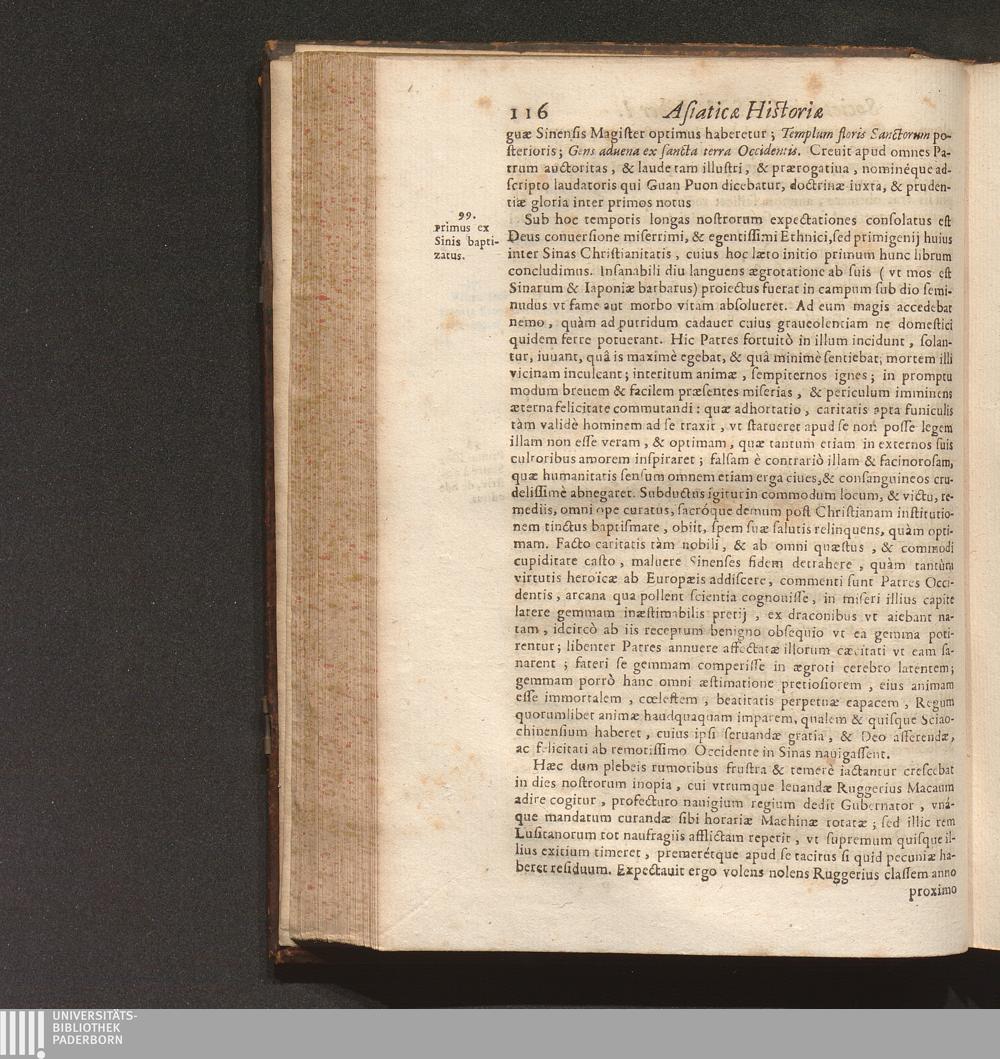 116 Asiaticæ Historiæ
guæ Sinensis Magister optimus haberetur ; Templum floris Sanctorum po-
sterioris ; Gens aduena ex sancta terra Occidentis. Creuit apud omnes Pa-
trum auctoritas , & laude tam illustri , & prærogatiua , nominéque ad-
scripto laudatoris qui Guan Puon dicebatur, doctrinæ iuxta, & pruden-
tiæ gloria inter primos notus
99.
Primus ex
Sinis bapti-
zatus.
Sub hoc temporis longas nostrorum expectationes consolatus est
Deus conuersione miserrimi, & egentissimi Ethnici, sed primigenij huius
inter Sinas Christianitatis , cuius hoc læto initio primum hunc librum
concludimus. Insanabili diu languens ægrotatione ab suis ( vt mos est
Sinarum & Iaponiæ barbarus) proiectus fuerat in campum sub dio semi-
nudus vt fame aut morbo vitam absolueret. Ad eum magis accedebat
nemo , quàm ad putridum cadauer cuius graueolentiam ne domestici
quidem ferre potuerant. Hic Patres fortuitò in illum incidunt , solan-
tur, iuuant, quâ is maximè egebat, & quâ minimè sentiebat; mortem illi
vicinam inculcant ; interitum animæ , sempiternos ignes ; in promptu
modum breuem & facilem præsentes miserias , & periculum imminens
æterna felicitate commutandi : quæ adhortatio , caritatis apta funiculis
tàm validè hominem ad se traxit , vt statueret apud se non posse legem
illam non esse veram , & optimam , quæ tantum etiam in externos suis
cultoribus amorem inspiraret ; falsam è contrariò illam & facinorosam,
quæ humanitatis sensum omnem etiam erga ciues, & consanguineos cru-
delissimè abnegaret. Subductus igitur in commodum locum, & victu, re-
mediis, omni ope curatus, sacróque demum post Christianam institutio-
nem tinctus baptismate , obiit, spem suæ salutis relinquens, quàm opti-
mam. Facto caritatis tàm nobili , & ab omni quæstus , & commodi
cupiditate casto , maluere Sinenses fidem detrahere , quàm tantùm
virtutis heroicæ ab Europæis addiscere, commenti sunt Patres Occi-
dentis , arcana qua pollent scientia cognouisse, in miseri illius capite
latere gemmam inæstimabilis pretij , ex draconibus vt aiebant na-
tam , idcircò ab iis receptum benigno obsequio vt ea gemma poti-
rentur ; libenter Patres annuere affectatæ illorum cæcitati vt eam sa-
narent ; fateri se gemmam comperisse in ægroti cerebro latentem;
gemmam porrò hanc omni æstimatione pretiosiorem , eius animam
esse immortalem , cœlestem , beatitatis perpetuæ capacem , Regum
quorumlibet animæ haudquaquam imparem, qualem & quisque Sciao-
chinensium haberet , cuius ipsi seruandæ gratia , & Deo asserendæ,
ac felicitati ab remotissimo Occidente in Sinas nauigassent.
Hæc dum plebeis rumoribus frustra & temerè iactantur crescebat
in dies nostrorum inopia , cui vtrumque leuandæ Ruggerius Macaum
adire cogitur , profecturo nauigium regium dedit Gubernator , vná-
que mandatum curandæ sibi horariæ Machinæ rotatæ ; sed illic rem
Lusitanorum tot naufragiis afflictam reperit , vt supremum quisque il-
lius exitium timeret , premerétque apud se tacitus si quid pecuniæ ha-
beret residuum. Expectauit ergo volens nolens Ruggerius classem anno
proximo
UNIVERSITÄTS-
BIBLIOTHEK
PADERBORN